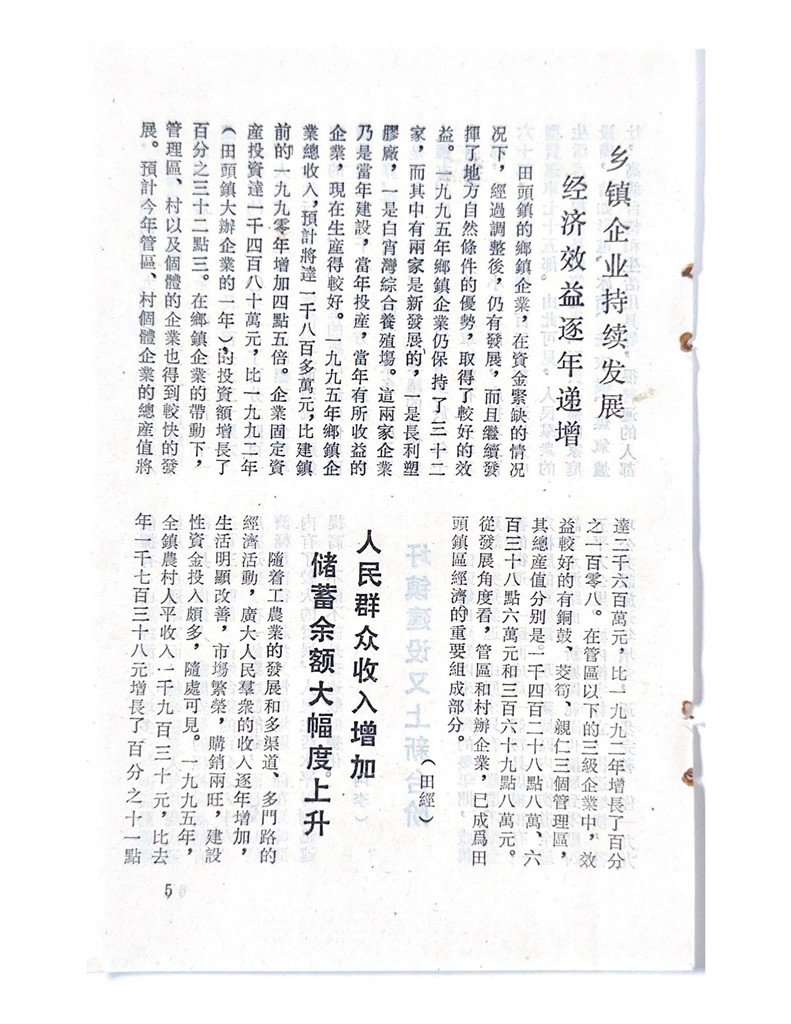 乡镇企业持续发展
经济效益逐年递增
田頭鎮的鄉鎮企業，在資金緊缺的情况
况下，經過調整後，仍有發展，而且繼續發
揮了地方自然條件的優勢，取得了較好的效
益。一九九五年鄉鎮企業仍保持了三十二
家，而其中有兩家是新發展的，一是長利塑
膠廠，一是白宵灣綜合養殖場。這兩家企業
乃是當年建設，當年投産，當年有所收益的
企業，現在生産得較好。一九九五年鄉鎮企
業總收入，預計將達一千八百多萬元，比建鎮
前的一九九零年增加四點五倍。企業固定資
産投資達一千四百八十萬元，比一九九二年
（田頭鎮大辦企業的一年）的投資額增長了
百分之三十二點三。在鄉鎮企業的帶動下，
管理區、村以及個體的企業也得到較快的發
展。預計今年管區、村個體企業的總産值將
達二千六百萬元，比一九九二年增長了百分
之一百零八。在管區以下的三級企業中，效
益較好的有銅鼓、茭筍、親仁三個管理區，
其總産值分别是一千四百二十八點八萬、六
百三十八點六萬元和三百六十九點八萬元。
從發展角度看，管區和村辦企業，已成爲田
頭鎮區經濟的重要組成部分。
（田經）
人民群众收入增加
储蓄余额大幅度上升
隨着工農業的發展和多渠道、多門路的
經濟活動，廣大人民羣衆的收入逐年增加，
生活明顯改善，市場繁榮，購銷兩旺，建設
性資金投入頗多，隨處可見。一九九五年，
全鎮農村人平收入一千九百三十元，比去
年一千七百三十八元增長了百分之十一點
5